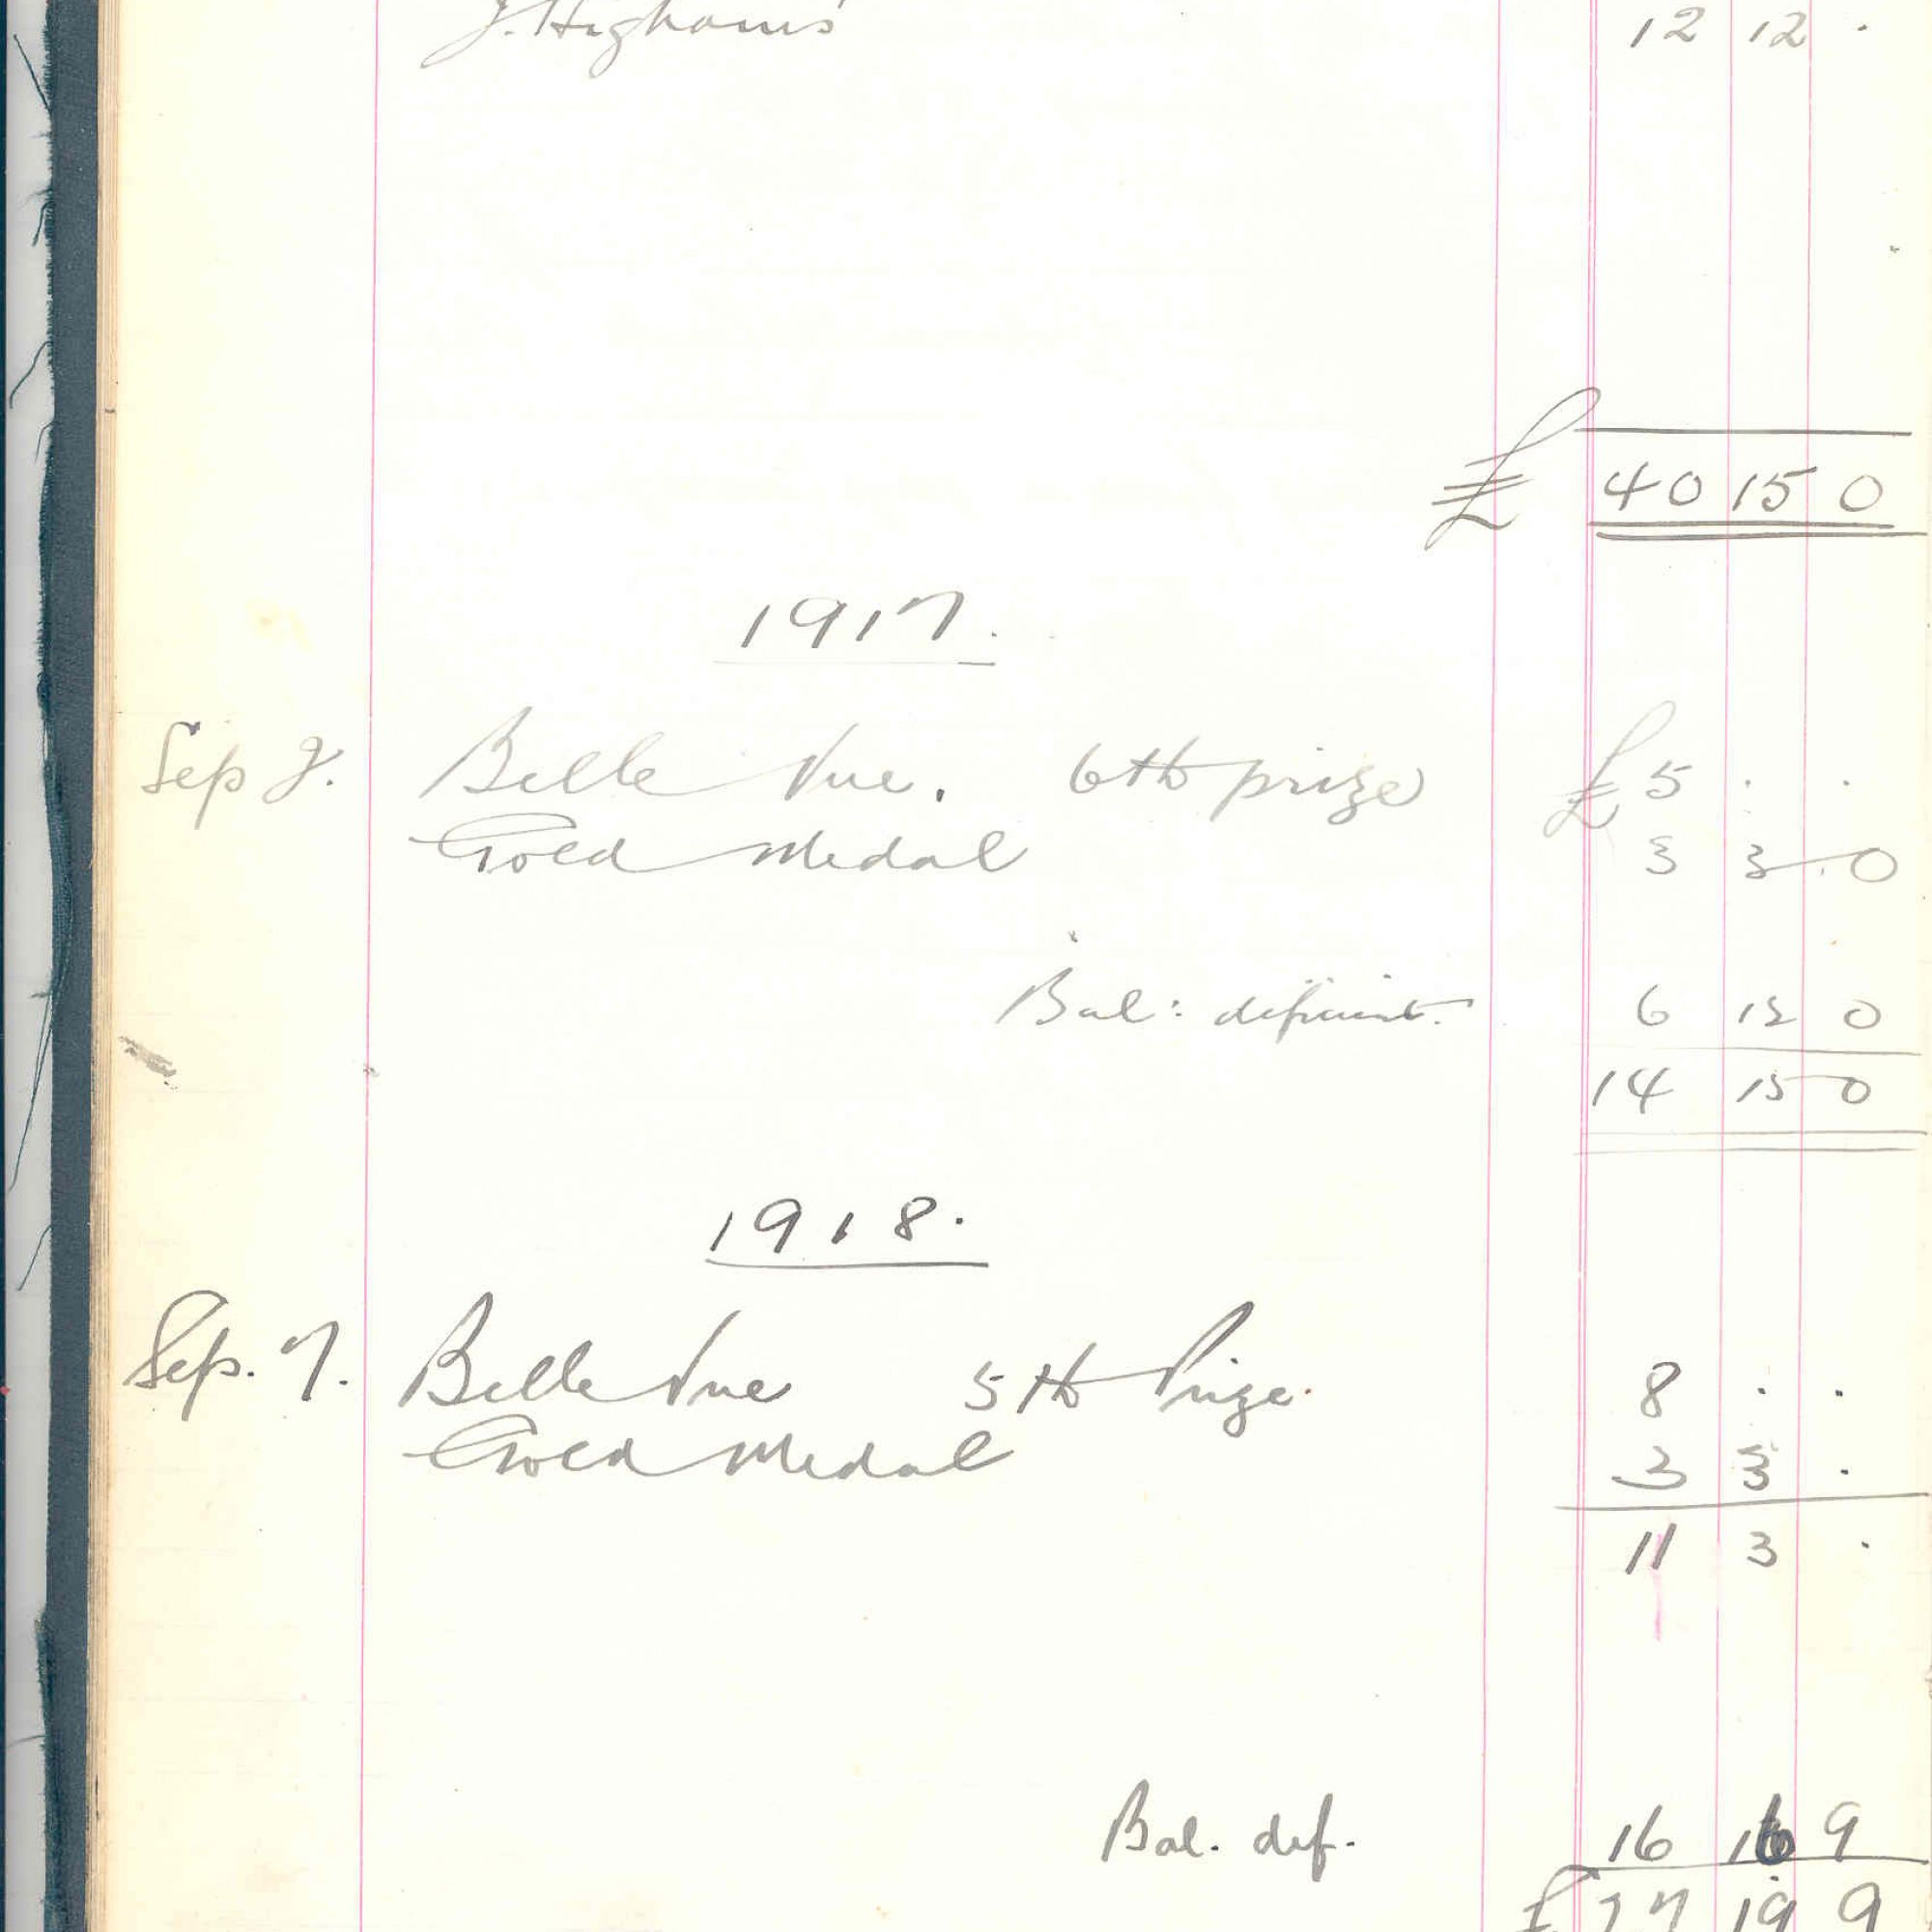 J. Highams 12 12 .
£ 40 15 0
1917.
Sep 2. Belle Vue. 6th prize £ 5 . .
Gold Medal 3 3 0
Bal: deficient. 6 12 0
14 15 0
1918.
Sep. 7. Belle Vue 5th Prize. 8 . .
Gold Medal 3 3 .
11 3 .
Bal. def. 16 16 9
£ 27 19 9